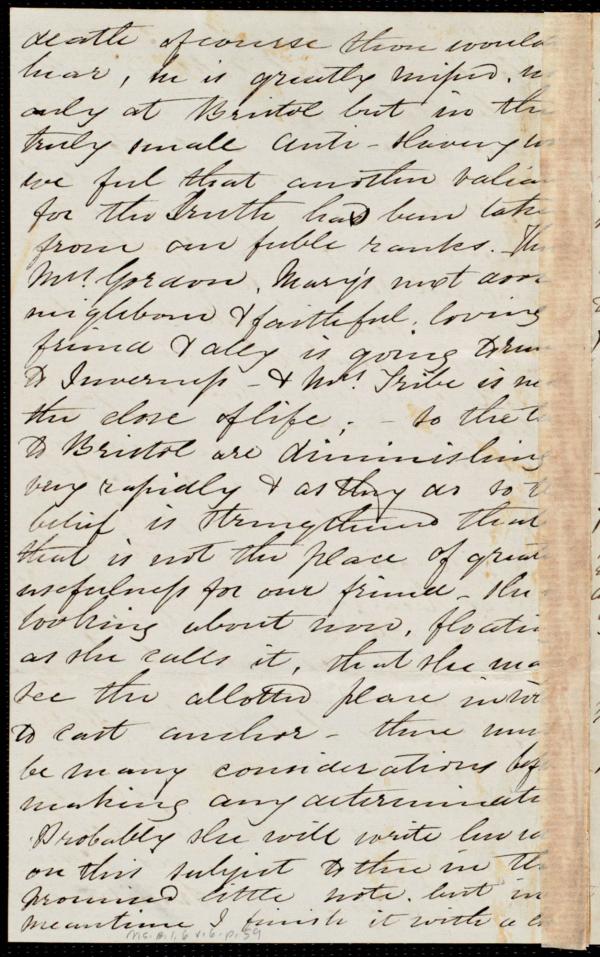 death of course thou would
hear, he is greatly missed, n
only at Bristol but in the
truly small Anti-Slavery w
we feel that another valia
for the Truth has been take
from our feeble ranks. Th
Mrs. Gordon, Mary's next door
neighbour & faithful, loving
friend & ally is going
to Inverness - & Mrs. Tribe is ne
the close of life; - so the t
to Bristol are diminishing
very rapidly & as they do so t
belief is strengthened that
that is not the place of great
usefulness for our friend - she
looking about now, floati
as she calls it, that she ma
see the allotted place in w
to cast anchor - there mu
be many considerations bef
making any determinati
Probably she will write
on this subject to thee in th
promised little note. but in
meantime I finish it with a
Ms.A.1.6 v.6.p.59